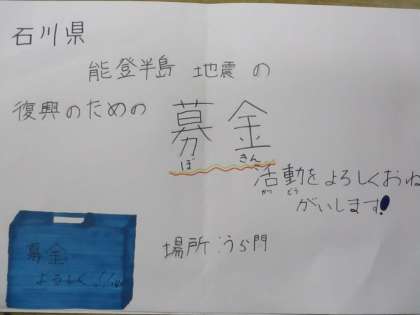 石川県
能登半島 地震の
復興のための
募金
ぼ きん
活動をよろしくおね
かつ どう
がいします!
募金
よろしく!!
場所:うら門